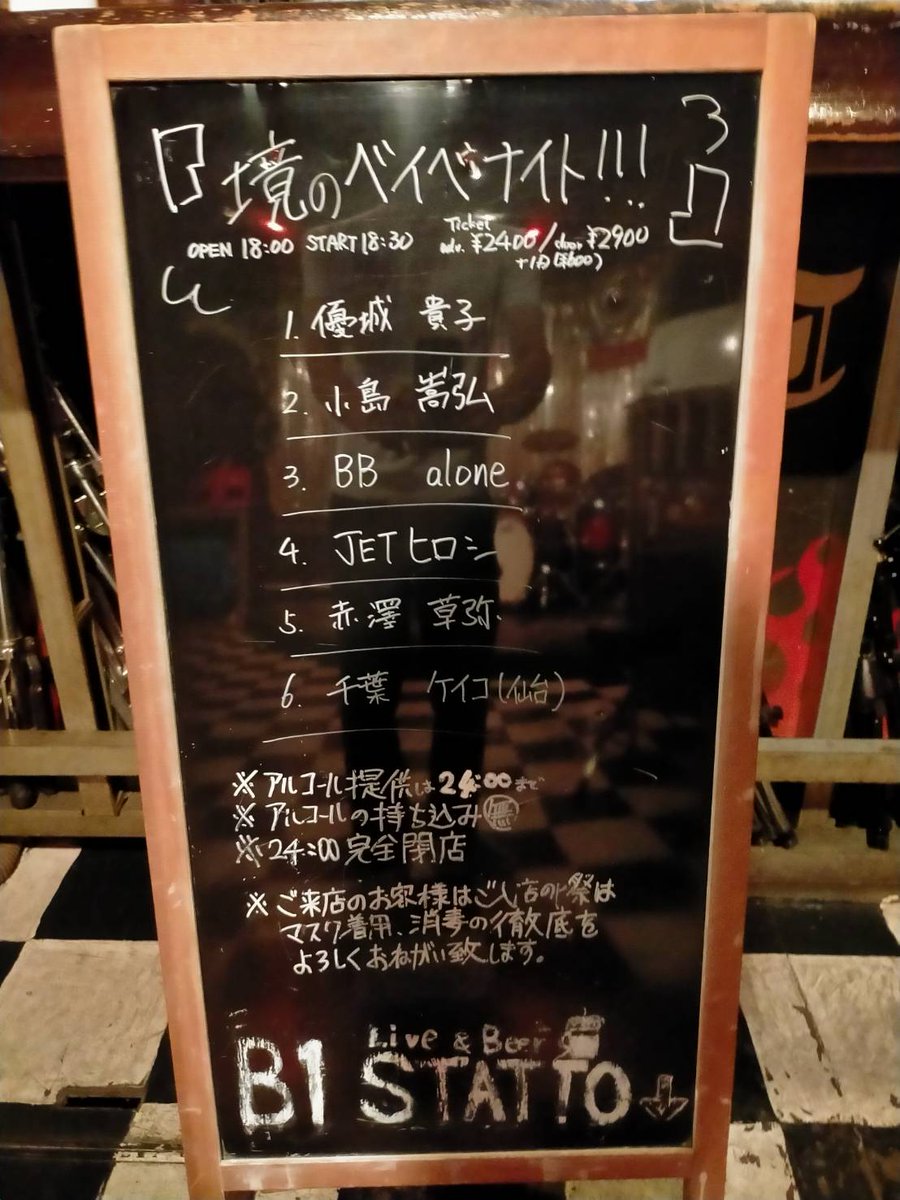 『境のベイベナイト!!! 』
OPEN 18:00 START 18:30 Ticket adv. ¥2400/door ¥2900
+1D(¥600)
1. 優城 貴子
2. 小島 嵩弘
3. BB alone
4. JETヒロシ
5. 赤澤 草弥
6. 千葉 ケイコ(仙台)
※ アルコール提供は24:00まで
※ アルコールの持ち込み無
※ 24:00完全閉店
※ ご来店のお客様はご入店の際は
マスク着用、消毒の徹底を
よろしくおねがい致します。
Live & Beer
B1 STATTO ↓